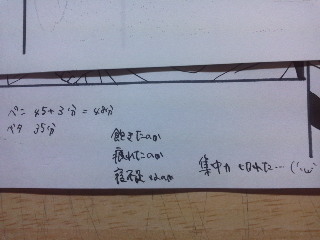 ペン 45+3分 = 48分
ベタ 35分
飽きたのか
疲れたのか
寝不足なのか
集中力切れた…('ω'